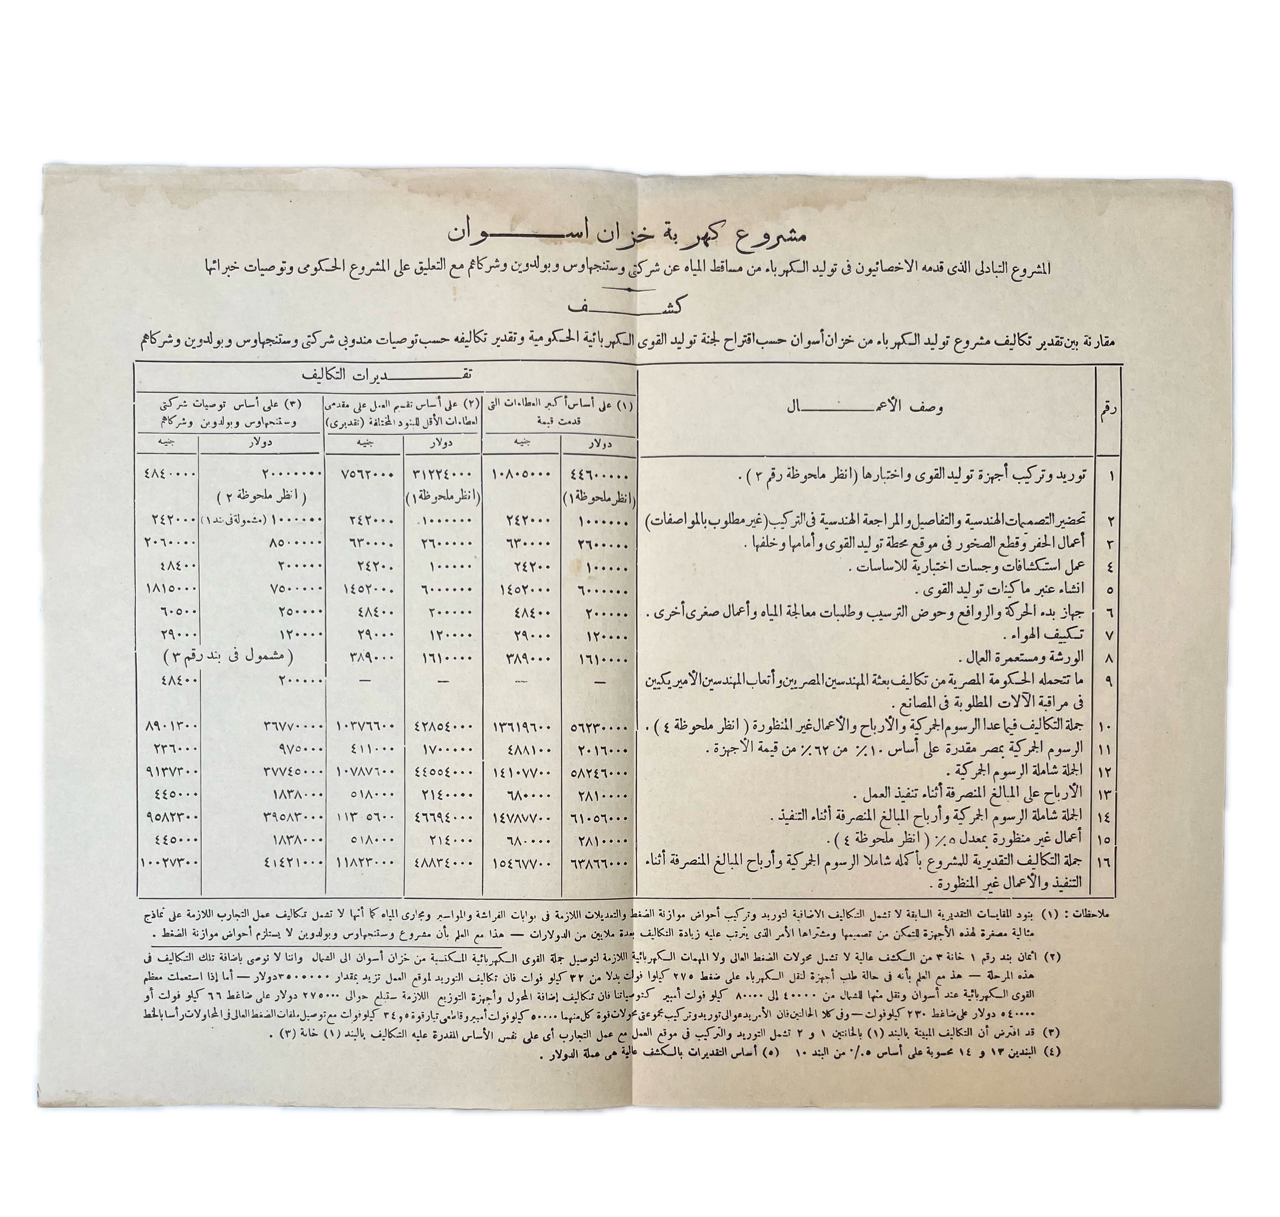 مشروع كهربة خزان اسوان
المشروع التبادلى الذى قدمه الاخصائيون فى توليد الكهرباء من مساقط المياه عن شركتى وستنجهاوس وبولدوين وشركاهم مع التعليق على المشروع الحكومى وتوصيات خبرائها
كشف
مقارنة بين تقدير تكاليف مشروع توليد الكهرباء من خزان أسوان حسب اقتراح لجنة توليد القوى الكهربائية الحكومية وتقدير تكاليفه حسب توصيات مندوبى شركتى وستنجهاوس وبولدوين وشركاهم
رقم وصف الأعمال تقديرات التكاليف
(١) على أساس أكبر العطاءات التى قدمت قيمة (٢) على أساس تقسيم العمل على مقدمى لعطاءات الأقل للبنود المختلفة (تقديرى) (٣) على أساس توصيات شركتى وستنجهاوس وبولدوين وشركاهم
دولار جنيه دولار جنيه دولار جنيه
١ توريد وتركيب أجهزة توليد القوى واختبارها (انظر ملحوظة رقم ٣) . ٤٤٦٠٠٠٠٠ ١٠٨٠٥٠٠٠ ٣١٢٢٤٠٠٠ ٧٥٦٢٠٠٠ ٢٠٠٠٠٠٠٠ ٤٨٤٠٠٠٠
(انظر ملحوظة ١) (انظر ملحوظة ١) (انظر ملحوظة ٢)
٢ تحضير التصميمات الهندسية والتفاصيل والمراجعة الهندسية فى التركيب (غير مطلوب بالمواصفات) ١٠٠٠٠٠٠ ٢٤٢٠٠٠ ١٠٠٠٠٠٠ ٢٤٢٠٠٠ ١٠٠٠٠٠٠ (مشمولة فى بند ١) ٢٤٢٠٠٠
٣ أعمال الحفر وقطع الصخور فى موقع محطة توليد القوى وأمامها وخلفها . ٢٦٠٠٠٠٠ ٦٣٠٠٠٠ ٢٦٠٠٠٠٠ ٦٣٠٠٠٠ ٨٥٠٠٠٠٠ ٢٠٦٠٠٠٠
٤ عمل استكشافات وجسات اختبارية للاساسات . ١٠٠٠٠٠ ٢٤٢٠٠ ١٠٠٠٠٠ ٢٤٢٠٠ ٢٠٠٠٠٠ ٤٨٤٠٠
٥ انشاء عنبر ماكينات توليد القوى . ٦٠٠٠٠٠٠ ١٤٥٢٠٠٠ ٦٠٠٠٠٠٠ ١٤٥٢٠٠٠ ٧٥٠٠٠٠٠ ١٨١٥٠٠٠
٦ جهاز بدء الحركة والروافع وحوض الترسيب وطلمبات معالجة المياه وأعمال صغرى أخرى . ٢٠٠٠٠٠ ٤٨٤٠٠ ٢٠٠٠٠٠ ٤٨٤٠٠ ٢٥٠٠٠٠ ٦٠٥٠٠
٧ تكييف الهواء . ١٢٠٠٠٠ ٢٩٠٠٠ ١٢٠٠٠٠ ٢٩٠٠٠ ١٢٠٠٠٠ ٢٩٠٠٠
٨ الورشة ومستعمرة العمال . ١٦١٠٠٠٠ ٣٨٩٠٠٠ ١٦١٠٠٠٠ ٣٨٩٠٠٠ (مشمول فى بند رقم ٣)
٩ ما تتحمله الحكومة المصرية من تكاليف بعثة المهندسين المصريين وأتعاب المهندسين الأميريكيين — — — — ٢٠٠٠٠٠ ٤٨٤٠٠
فى مراقبة الآلات المطلوبة فى المصانع .
١٠ جملة التكاليف فيما عدا الرسوم الجمركية والأرباح والأعمال غير المنظورة (انظر ملحوظة ٤) . ٥٦٢٣٠٠٠٠ ١٣٦١٩٦٠٠ ٤٢٨٥٤٠٠٠ ١٠٣٧٦٦٠٠ ٣٦٧٧٠٠٠٠ ٨٩٠١٣٠٠
١١ الرسوم الجمركية بمصر مقدرة على أساس ١٠٪ من ٦٢٪ من قيمة الأجهزة . ٢٠١٦٠٠٠ ٤٨٨١٠٠ ١٧٠٠٠٠٠ ٤١١٠٠٠ ٩٧٥٠٠٠ ٢٣٦٠٠٠
١٢ الجملة شاملة الرسوم الجمركية . ٥٨٢٤٦٠٠٠ ١٤١٠٧٧٠٠ ٤٤٥٥٤٠٠٠ ١٠٧٨٧٦٠٠ ٣٧٧٤٥٠٠٠ ٩١٣٧٣٠٠
١٣ الأرباح على المبالغ المنصرفة أثناء تنفيذ العمل . ٢٨١٠٠٠٠ ٦٨٠٠٠٠ ٢١٤٠٠٠٠ ٥١٨٠٠٠ ١٨٣٨٠٠٠ ٤٤٥٠٠٠
١٤ الجملة شاملة الرسوم الجمركية وأرباح المبالغ المنصرفة أثناء التنفيذ . ٦١٠٥٦٠٠٠ ١٤٧٨٧٧٠٠ ٤٦٦٩٤٠٠٠ ١١٣٠٥٦٠٠ ٣٩٥٨٣٠٠٠ ٩٥٨٢٣٠٠
١٥ أعمال غير منظورة بمعدل ٥٪ (انظر ملحوظة ٤) . ٢٨١٠٠٠٠ ٦٨٠٠٠٠ ٢١٤٠٠٠ ٥١٨٠٠٠ ١٨٣٨٠٠٠ ٤٤٥٠٠٠
١٦ جملة التكاليف التقديرية للمشروع بأكمله شاملا الرسوم الجمركية وأرباح المبالغ المنصرفة أثناء ٦٣٨٦٦٠٠٠ ١٥٤٦٧٧٠٠ ٤٨٨٣٤٠٠٠ ١١٨٢٣٠٠٠ ٤١٤٢١٠٠٠ ١٠٠٢٧٣٠٠
التنفيذ والأعمال غير المنظورة .
ملاحظات : (١) بنود المقايسات التقديرية السابقة لا تشمل التكاليف الاضافية لتوريد وتركيب أحواض موازنة الضغط والتعديلات اللازمة فى بوابات الفراشة والمواسير ومجارى المياه كما أنها لا تشمل تكاليف عمل التجارب اللازمة على نماذج
مثالية مصغرة لهذه الأجهزة للتمكن من تصميمها ومشتراها الأمر الذى يترتب عليه زيادة التكاليف بعدة ملايين من الدولارات — هذا مع العلم بأن مشروع وستنجهاوس وبولدوين لا يستلزم أحواض موازنة الضغط .
(٢) أثمان بند رقم ١ خانة ٣ من الكشف عالية لا تشمل محولات الضغط العالى ولا المهمات الكهربائية اللازمة لتوصيل جملة القوى الكهربائية المكتسبة من خزان أسوان الى الشمال واننا لا نوصى باضافة تلك التكاليف فى
هذه المرحلة — هذا مع العلم بأنه فى حالة طلب أجهزة لنقل الكهرباء على ضغط ٢٧٥ كيلوا فولت بدلا من ٣٢ كيلو فولت فان تكاليف التوريد لموقع العمل تزيد بمقدار ٣٥٠٠٠٠٠ دولار — أما إذا استعملت معظم
القوى الكهربائية عند أسوان ونقل منها للشمال من ٤٠٠٠٠ إلى ٨٠٠٠٠ كيلو فولت أمبير كتوصياتنا فان تكاليف إضافة المحول وأجهزة التوزيع اللازمة ستبلغ حوالى ٢٧٥٠٠٠ دولار على ضاغط ٦٦ كيلو فولت أو
٥٤٠٠٠٠ دولار على ضاغط ٢٣٠ كيلوفولت — وفى كلا الحالتين فان الأمر يدعو الى توريد وتركيب مجموعتى محولات قوة كل منهما ٥٠٠٠٠ كيلوفولت أمبير وقاطعى تيار قوة ٣٤٫٥ كيلو فولت مع توصيل ملفات الضغط العالى فى المحاولات رأسا بالخط
(٣) قد افترض أن التكاليف المبينة بالبند (١) بالخانتين ١ و ٢ تشمل التوريد والتركيب فى موقع العمل مع عمل التجارب أى على نفس الأساس المقدرة عليه التكاليف بالبند (١) خانة (٣) .
(٤) البندين ١٣ و ١٤ محسوبة على أساس ٥٪ من البند ١٠ (٥) أساس التقديرات بالكشف عالية هى عملة الدولار .